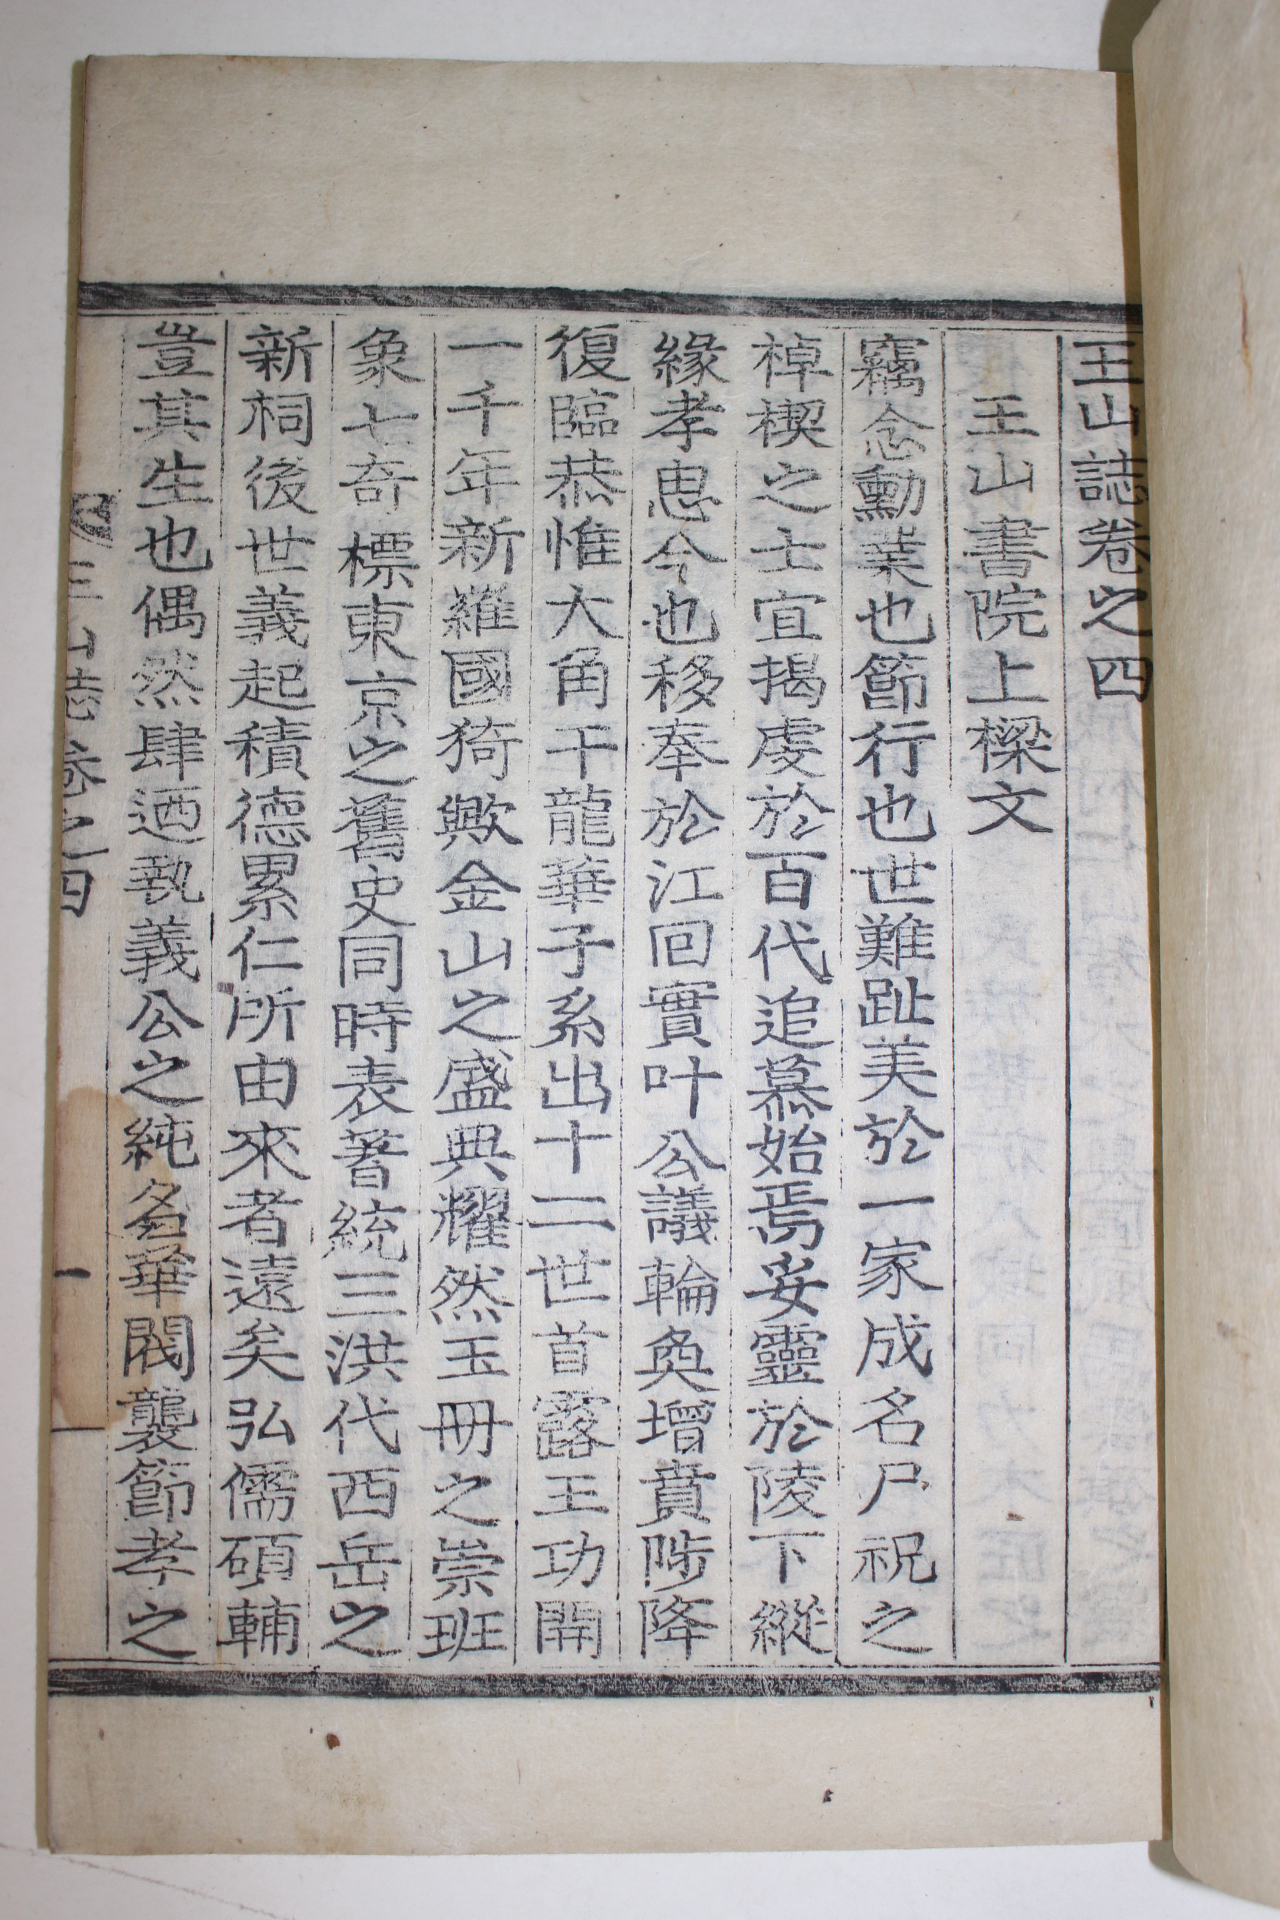 王山誌卷之四
王山書院上樑文
竊念勳業也節行也世難趾美於一家成名尸祝之
棹楔之士宜揭虔於百代追慕始焉妥靈於陵下縱
緣孝思今也移奉於江回實叶公議輪奐增賁陟降
復臨恭惟大角干龍華子系出十二世首露王功開
一千年新羅國猗歟金山之盛典耀然玉冊之崇班
象七奇標東京之舊史同時表著統三洪代西岳之
新祠後世義起積德累仁所由來者遠矣弘儒碩輔
豈其生也偶然肆迺執義公之純名華閥襲節孝之
王山誌 卷之四 一